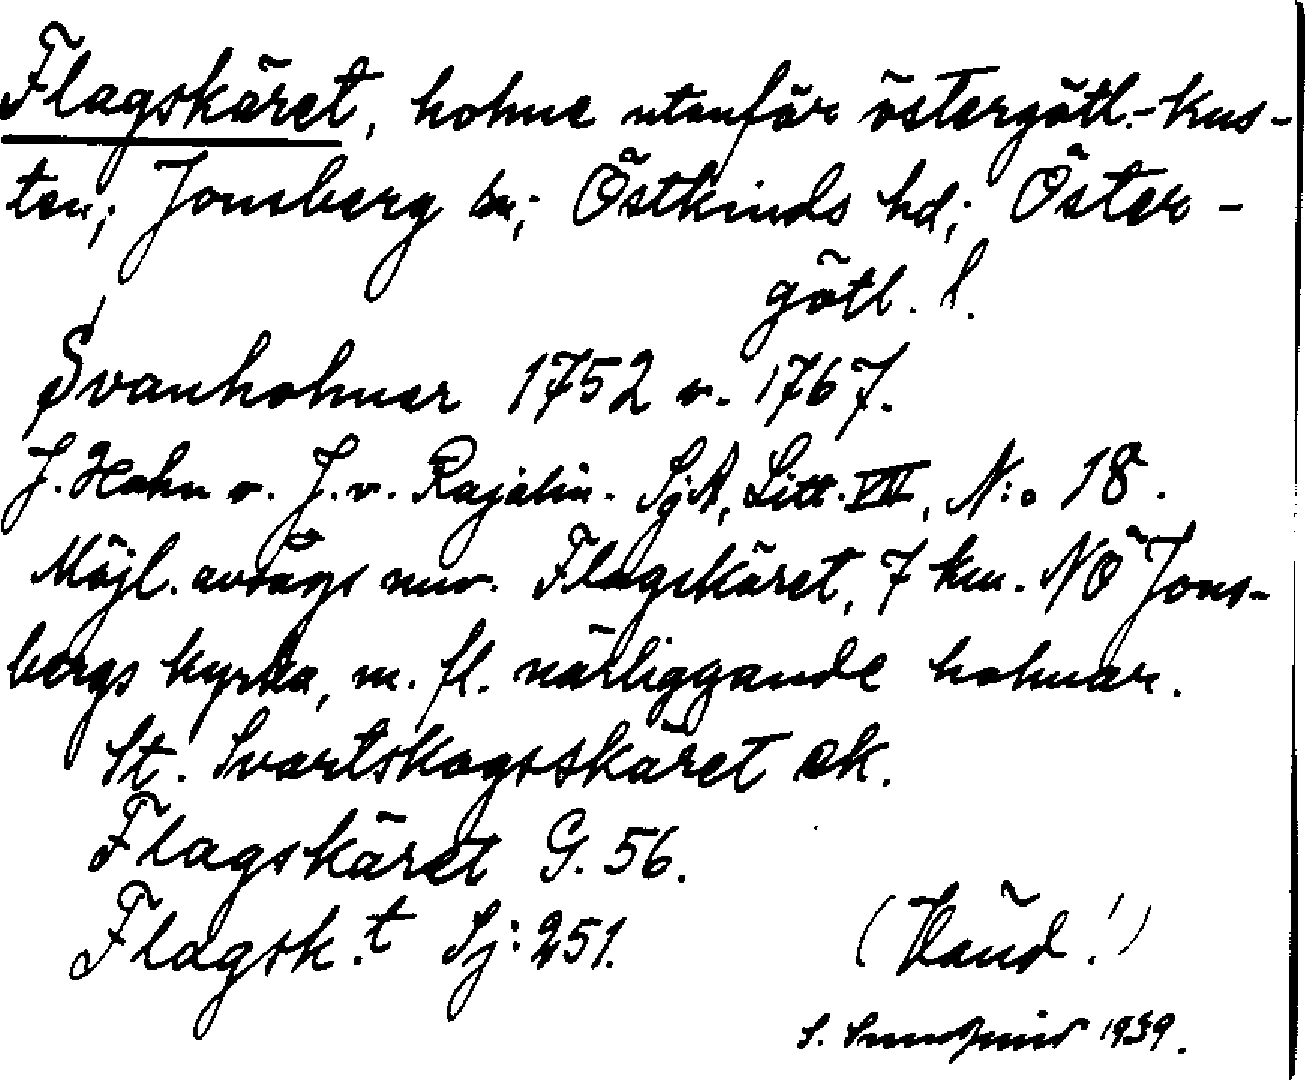 Flagskäret, holme utanför östergötl.-kus-
ten; Jonsberg sn; Östkinds hd; Öster-
götl. l.
Svanholmar 1752 o. 1767.
J. Hahn o. J. v. Rajalin. SjA, Litt. VII, N:o 18.
Möjl. avsågs nuv. Flagskäret, 7 km. NÖ Jons-
bergs kyrka, m. fl. närliggande holmar.
St. Svartskogsskäret ek.
Flagskäret G. 56.
Flagsk.t Sj: 251.
(Vänd!)
S. 1939.